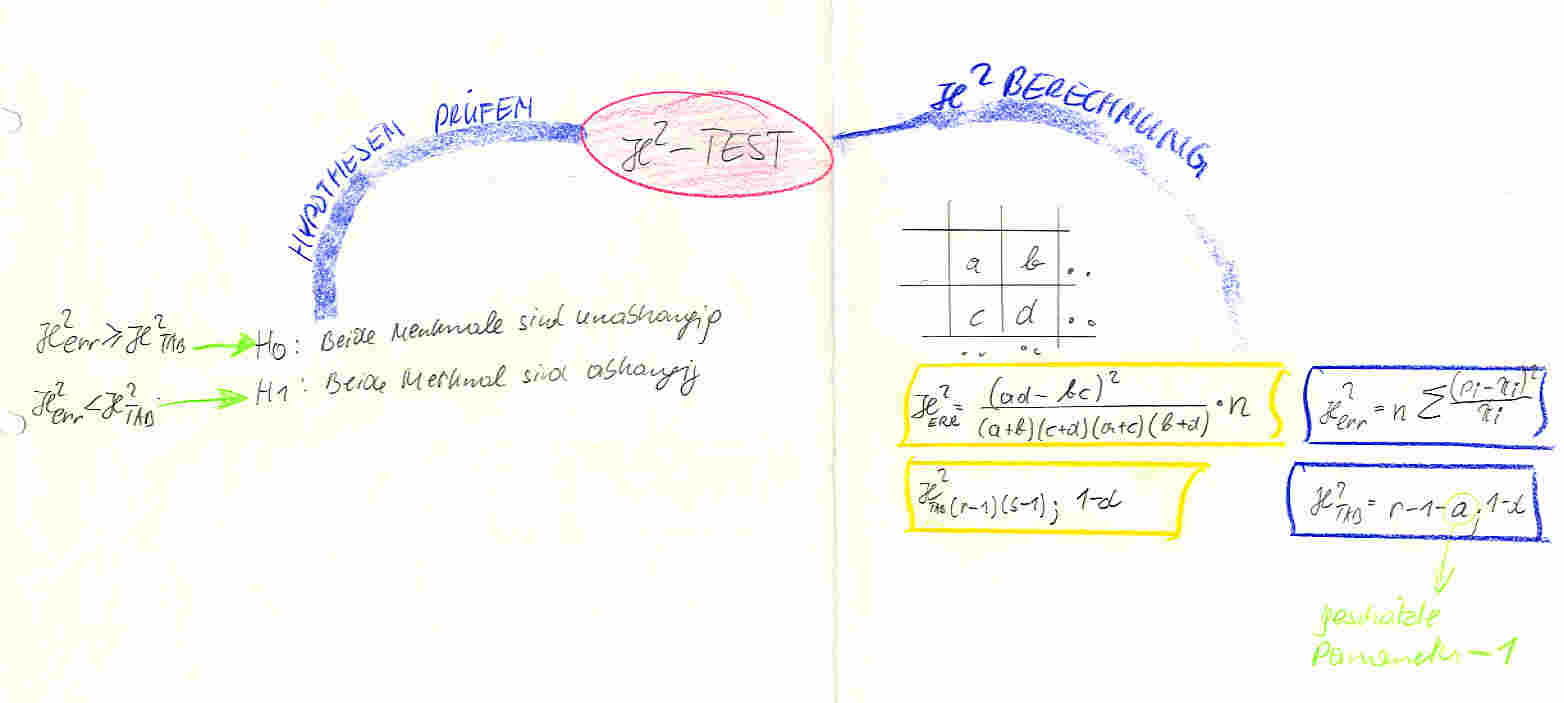 HYPOTHESEN PRÜFEN
ϰ² - TEST
ϰ² BERECHNUNG
ϰ²err ≥ ϰ²TAB → H0: Beide Merkmale sind unabhangig
ϰ²err < ϰ²TAB → H1: Beide Merkmal sind abhangig
a b ..
c d ..
.. ..
ϰ²ERR = (ad - bc)² / (a+b)(c+d)(a+c)(b+d) • n
ϰ²err = n Σ (pi - πi)² / πi
ϰ²TAB (r-1)(s-1); 1-α
ϰ²TAB = r-1-a; 1-α
geschätzte
Parameter - 1